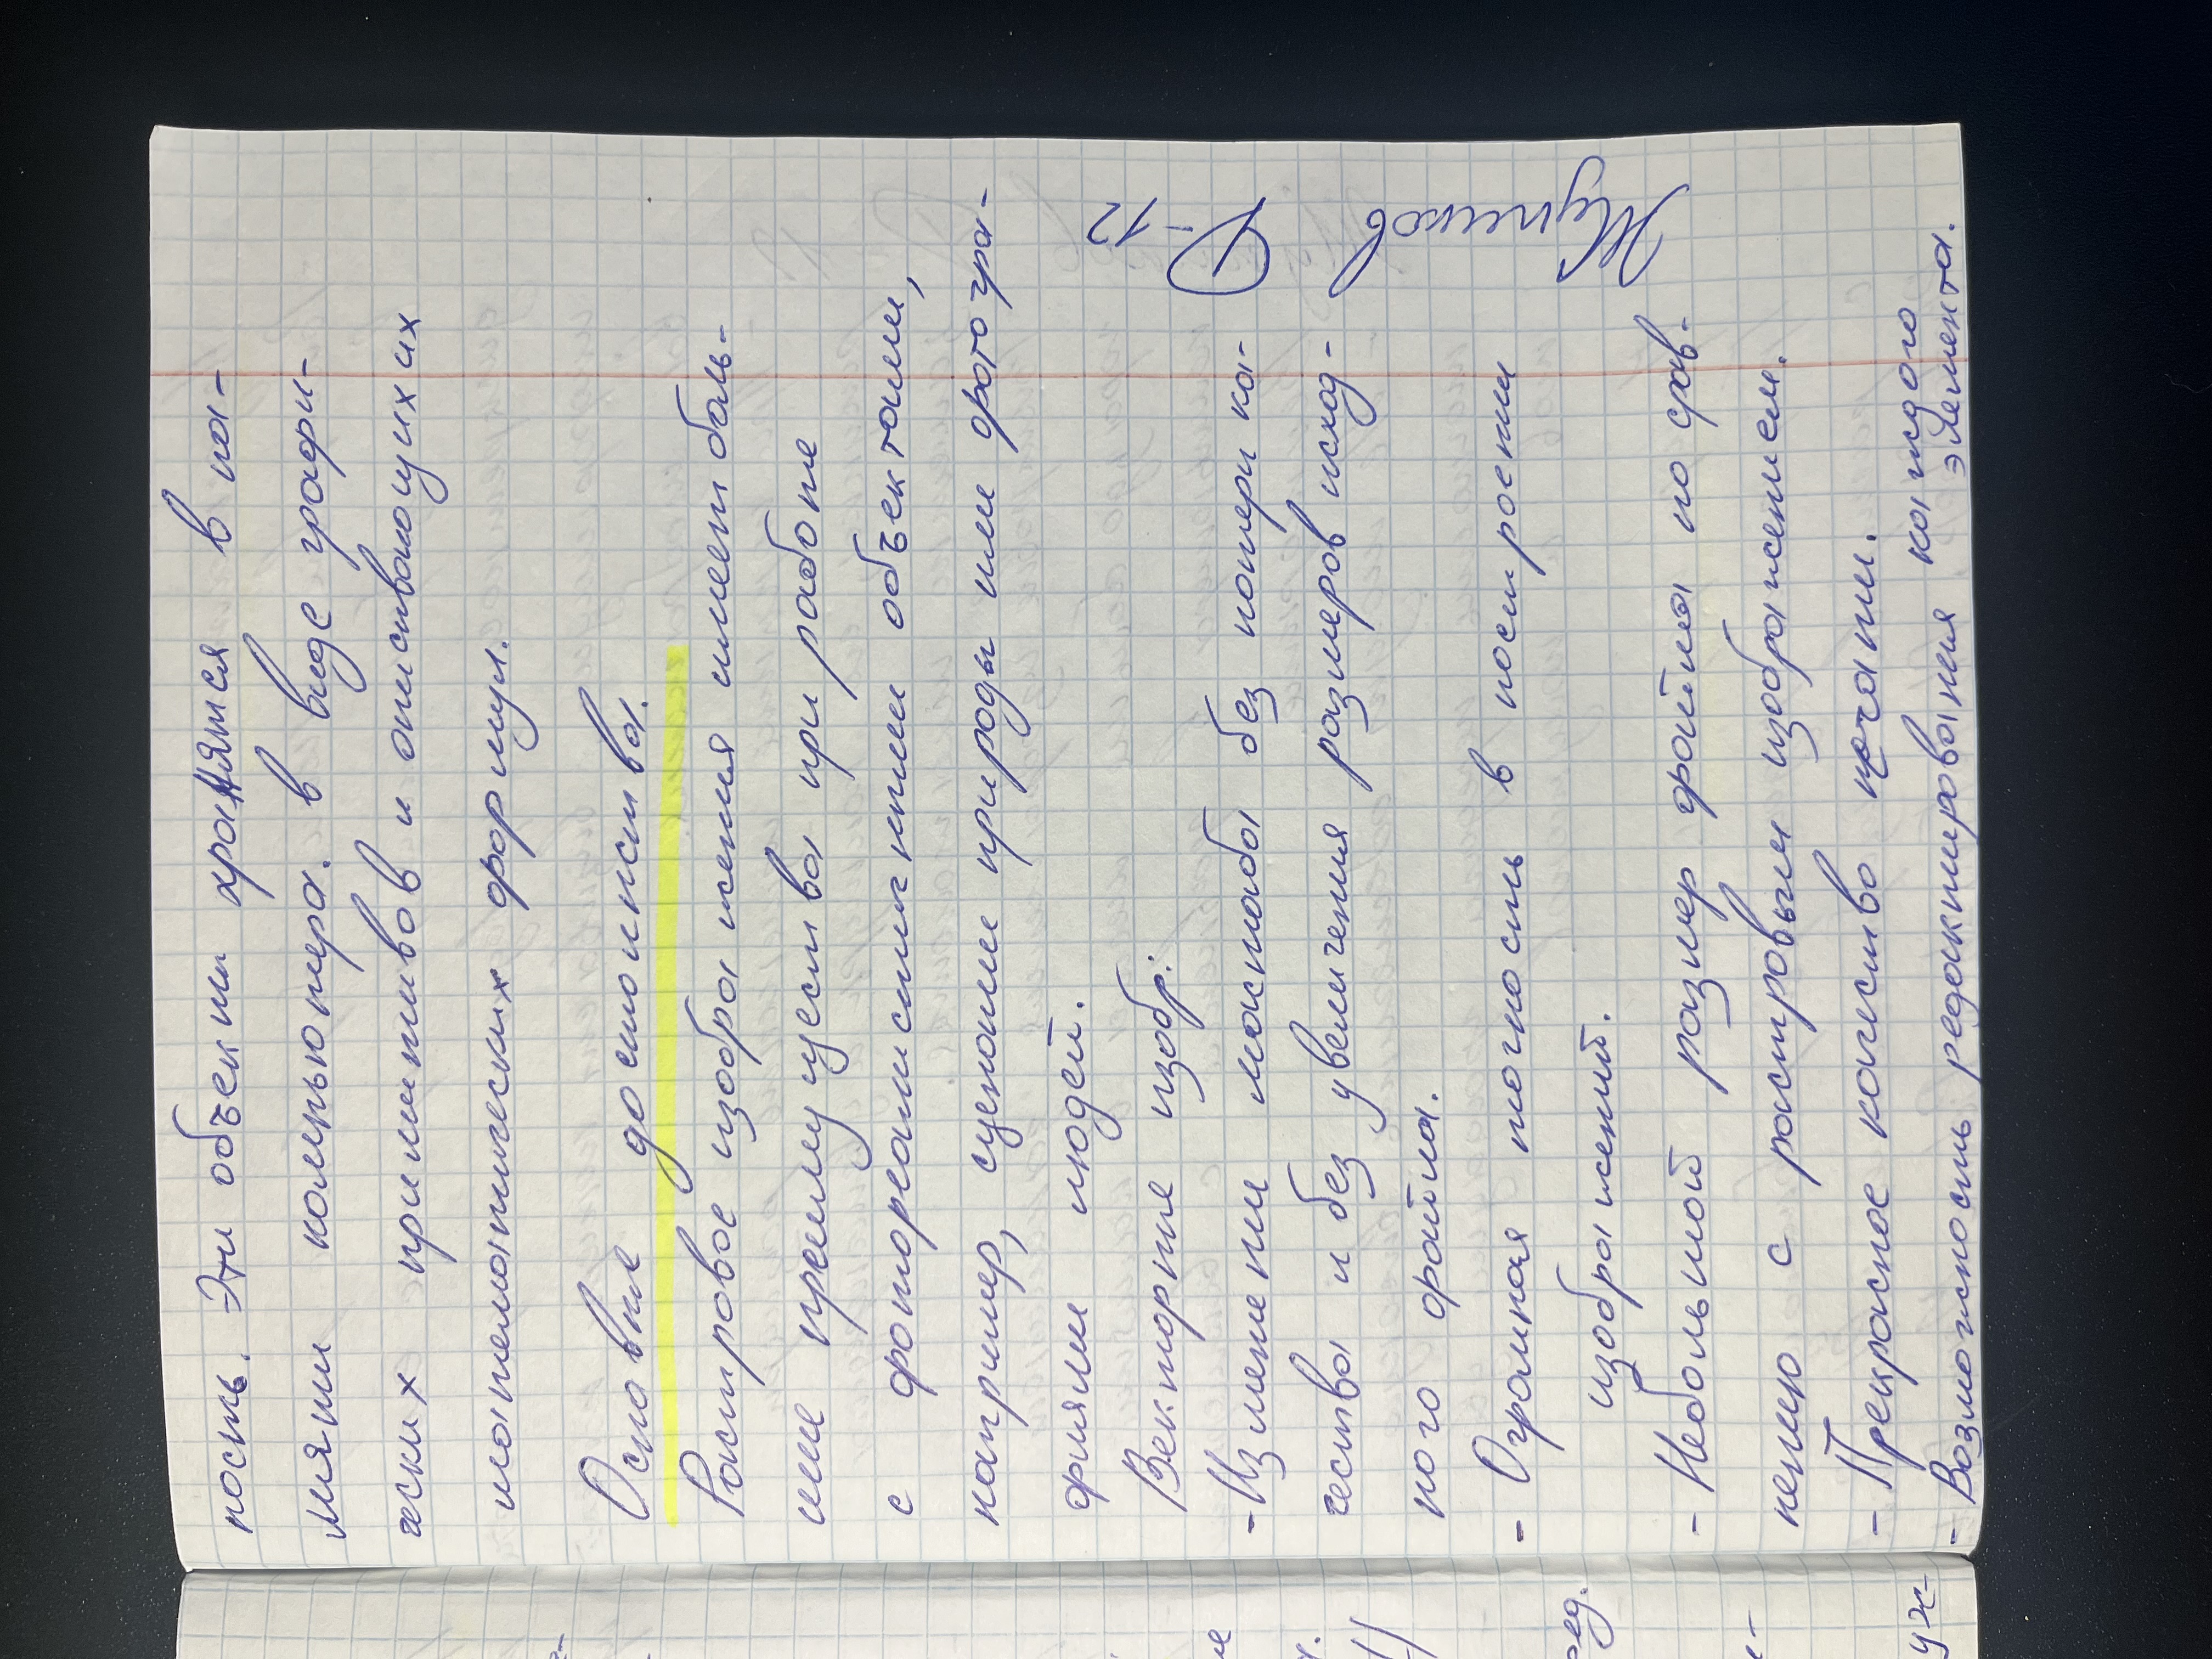 ность. Эти объекты хранятся в па-
мяти компьютера. в виде графи-
ческих примитивов и описывающих их
математических формул.
Основные достоинства.
Растровое изображения имеет боль-
шие преимущества при работе
с фотореалистичными объектами,
например, сценами природы или фотогра-
фиями людей.
Векторные изобр.:
- Изменении масштаба без потери ка-
чества и без увеличения размеров исход-
ного файла.
- Огромная точность в построении
изображений.
- Небольшой размер файла по срав-
нению с растровыми изображением.
- Прекрасное качество печати.
- Возможность редактирования каждого
элемента.
-12